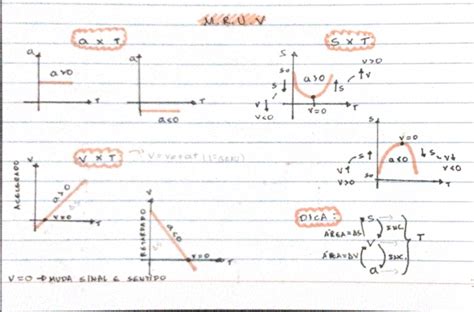 M.R.U.V
a x T
S x T
a
a>0
T
a
a<0
T
S
S0
a>0
v=0
T
S
V
V<0
V>0
V
S
V x T
ACELERADO
V
a>0
V=0
T
RETARDADO
V
a<0
V=0
T
S
S0
V=0
a<0
T
S
V
V>0
S
V
V<0
DICA:
S
ÁREA=ΔS
INC.
V
T
ÁREA=ΔV
INC.
a
V=0 → MUDA SINAL E SENTIDO